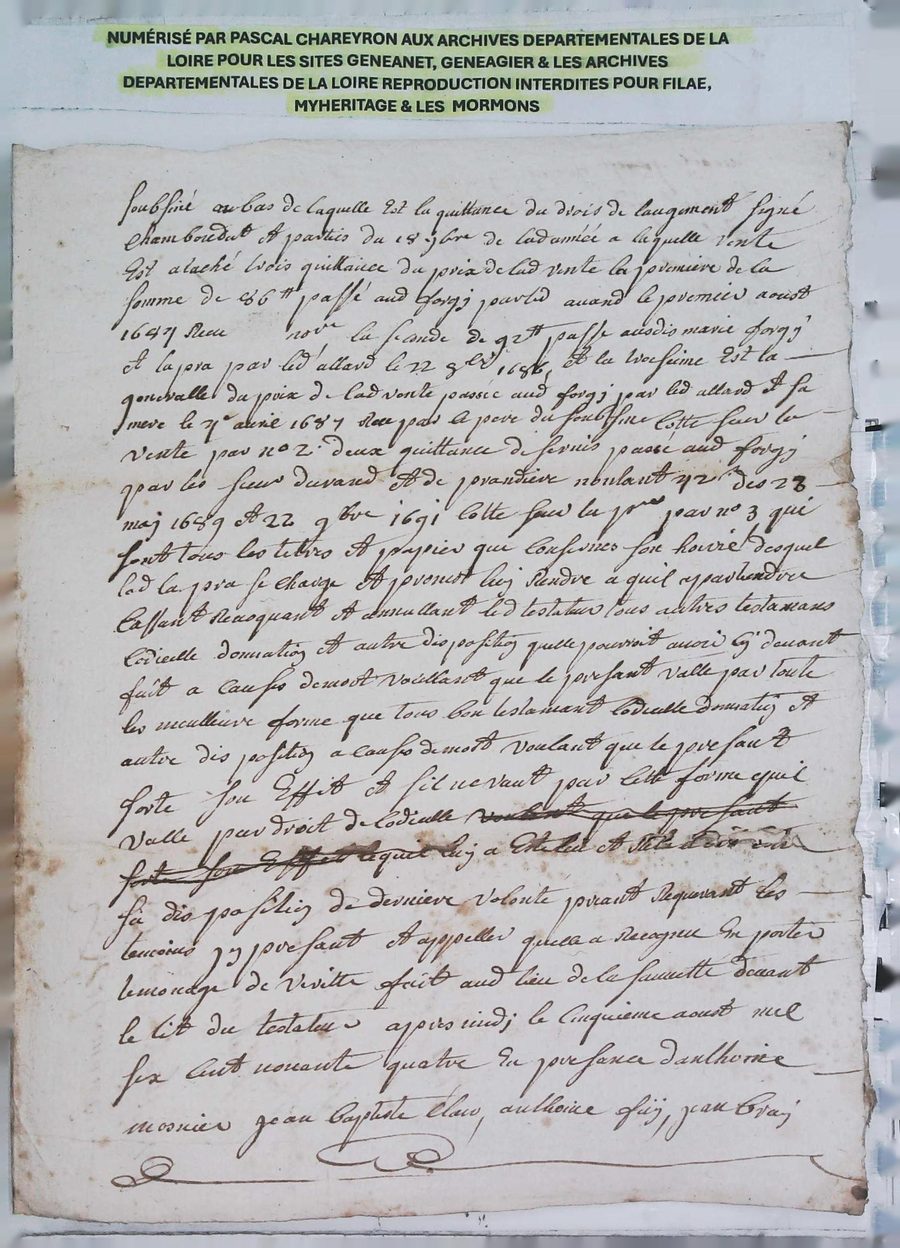 NUMÉRISÉ PAR PASCAL CHAREYRON AUX ARCHIVES DEPARTEMENTALES DE LA
LOIRE POUR LES SITES GENEANET, GENEAGIER & LES ARCHIVES
DEPARTEMENTALES DE LA LOIRE REPRODUCTION INTERDITES POUR FILAE,
MYHERITAGE & LES MORMONS
soubsiné au bas de laquelle Est la quittance du drois de laugement signé
Chamboudut Et partis du 18 9bre de lad année a laquelle vente
Est ataché trois quittance du prix de lad vente la premiere de la
somme de 86tt passé aud forgy par led auand le premier aoust
1687 Reçu la segonde de 92tt passé ausdis marie forgy
Et lapra par led allard le 22 8bre 1686, Et la troisime Est la
generalle du prix de lad vente passée aud forgy par led allard Et sa
mere le 7e auril 1687 Reçu par le pere du soubsine Cotte sur la
vente par no 2. deux quittance de sernis passé aud forgy
par les sieur durand Et de prandiere montant 42tt des 23
maj 1689 Et 22 9bre 1691 Cotte sur la pre par no 3 qui
sont tous les titres Et papier que Consernes son hoirié desquel
lad la pra se Charge Et promet luy Rendre a quil apartiendra
Cassant Reuoquant Et annullant led testateur tous autres testamans
Codicille donnation Et autre disposition quelle pourroit auoir Cy deuant
fait a Causes de mort Voullant que le presant valle par toute
les meulleure forme que tous bon testamant Codicille donnation Et
autre disposition a Causes de mort Voulant que le presant
sorte son Effit Et sil ne vaut par Cette forme quil
valle par droit de Codicille voulant que le presant
sorte son Effet lequel luy a Esté leu Et
sa disposition de derniere volonte priant Requerant les
temoins yy presant Et appeller quelle a Recogneu En porter
temonage de Veritte fait aud lieu de la sauuette deuant
le lit du testateur apres midj le Cinquieme aoust mil
six Cent nonante quatre En presance danthoine
mosnier jean baptiste Clau, anthoine fuy, jean bray